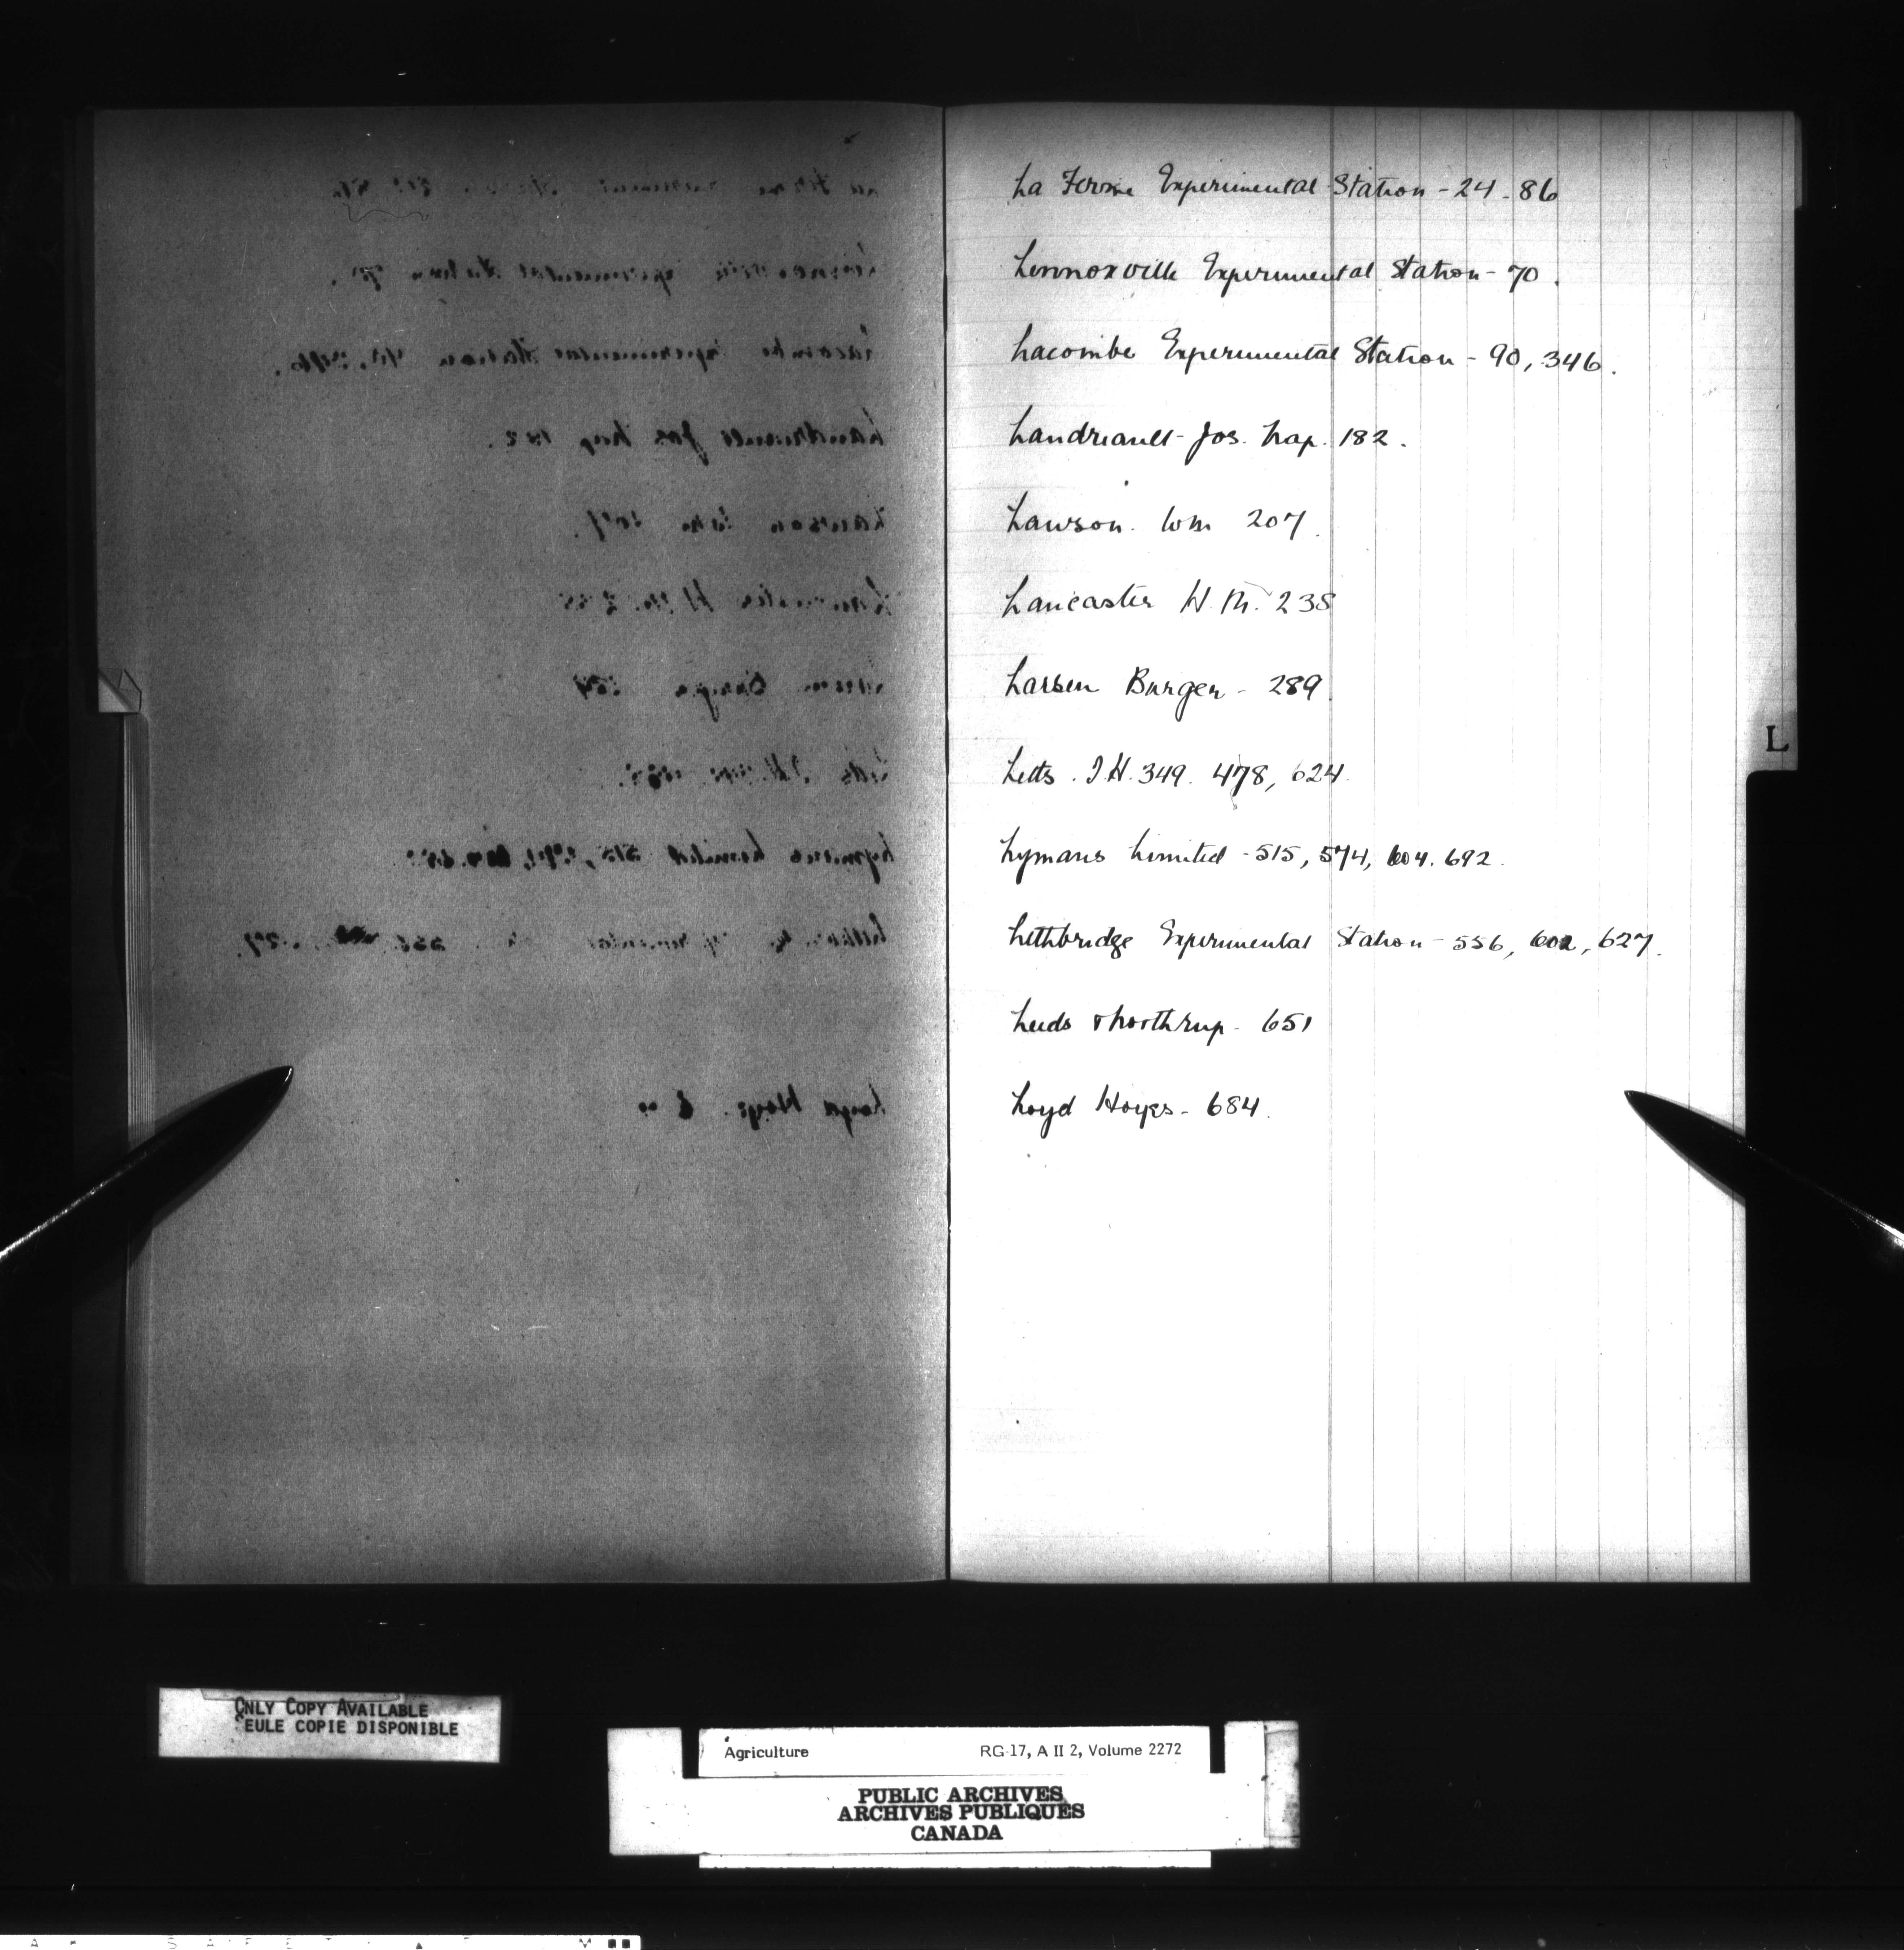 La Ferme Experimental Station - 24 - 86
Lennoxville Experimental Station - 70.
Lacombe Experimental Station - 90, 346.
Landriault - Jos. Nap. 182.
Lawson. Wm 207.
Lancaster H. M. 238
Larsen Burger - 289
L
Letts. I H. 349. 478, 624.
Lymans Limited - 515, 574, 604. 692.
Lethbridge Experimental Station - 556, 602, 627.
Leeds & Northrup - 651
Loyd Hoyes - 684.
ONLY COPY AVAILABLE
EULE COPIE DISPONIBLE
Agriculture RG 17, A II 2, Volume 2272
PUBLIC ARCHIVES
ARCHIVES PUBLIQUES
CANADA